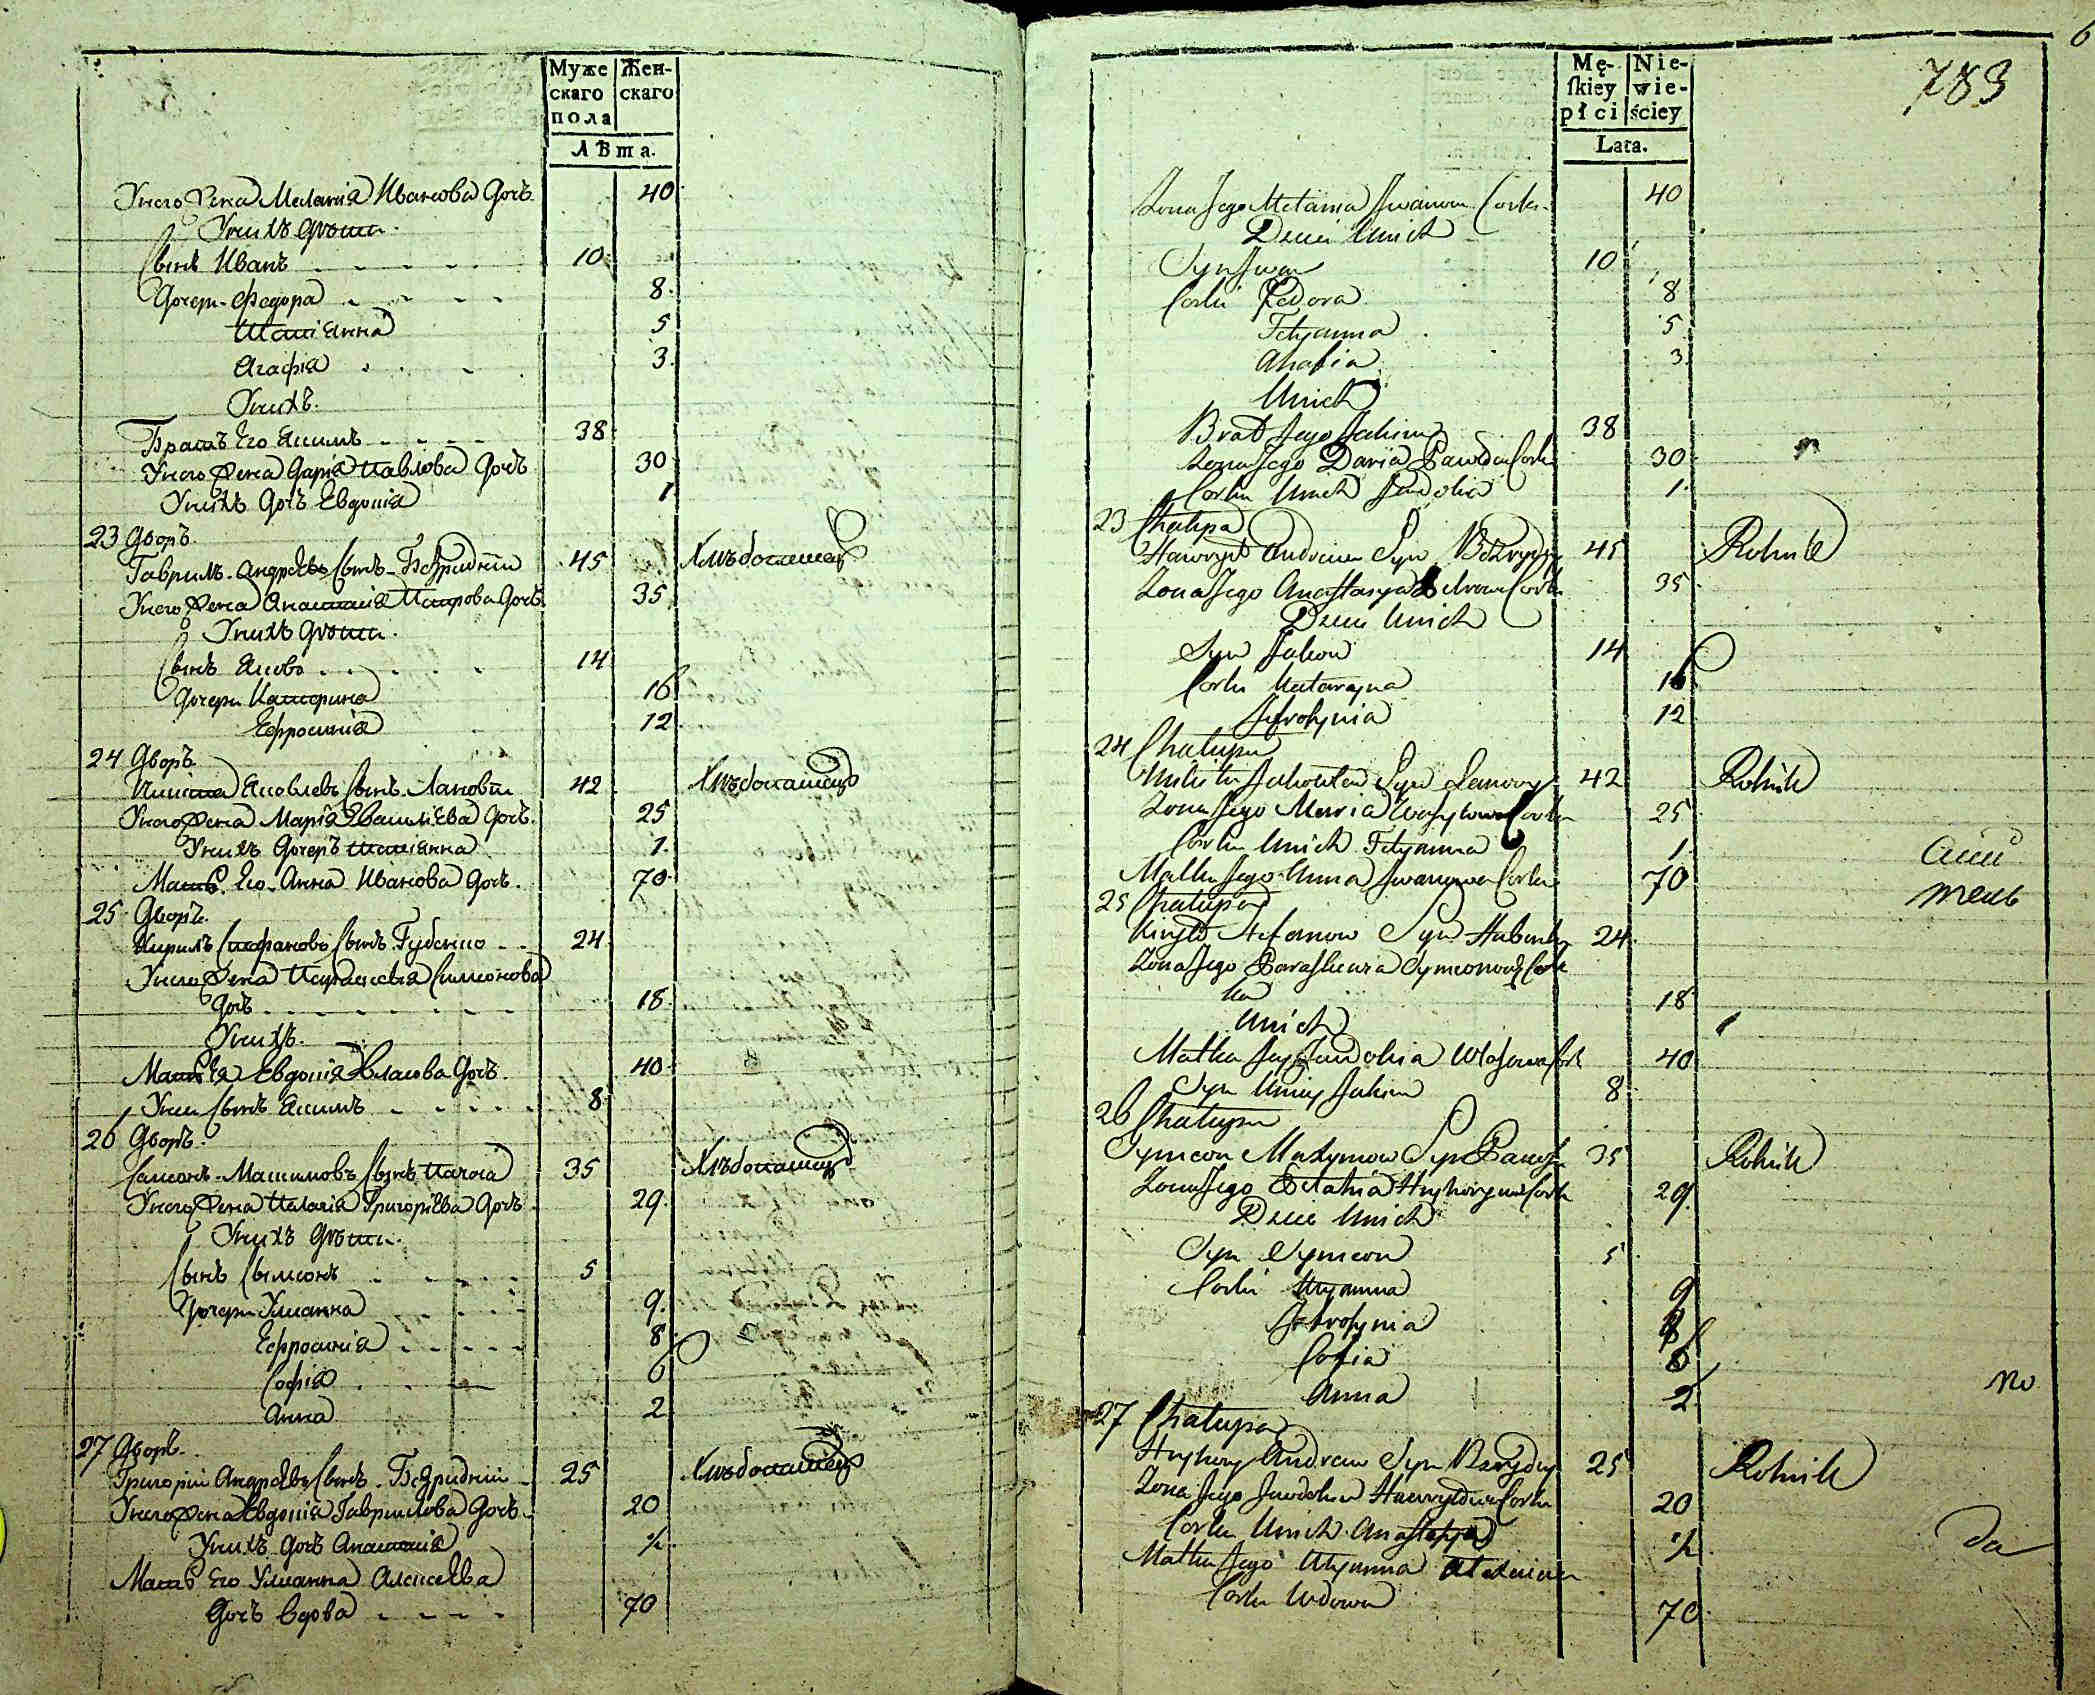 Муже
скаго
пола
Жен-
скаго
Лѣта.
У него Жена Меланія Иванова Дочь 40
У нихъ Дѣти
Сынъ Иванъ 10
Дочери Федора 8
Татіанна 5
Агафія 3
У нихъ
Братъ Его Якимъ 38
У него Жена Дарія Павлова Дочь 30
У нихъ Дочь Евдокія 1
23 Дворъ
Гаврилъ Андрѣевъ Сынъ 45 Хлѣбопашецъ
У него Жена Анастасія Петрова Дочь 35
У нихъ Дѣти
Сынъ Яковъ 14
Дочери Катерина 16
Ефросинія 12
24 Дворъ
Никита Яковлевъ Сынъ Лановый 42 Хлѣбопашецъ
У него Жена Марія Василіева Дочь 25
У нихъ Дочерь Татіанна 1
Мать Его Анна Иванова Дочь 70
25 Дворъ
Кирилъ Стефановъ Сынъ Губенко 24
У него Жена Параскевія Симеонова
Дочь 18
У нихъ
Мать Ея Евдокія Власова Дочь 40
У ней Сынъ Якимъ 8
26 Дворъ
Самсонъ Максимовъ Сынъ 35 Хлѣбопашецъ
У него Жена Пелагія Григоріева Дочь 29
У нихъ Дѣти
Сынъ Сымеонъ 5
Дочери Ульянна 9
Ефросинія 8
Софія 6
Анна 2
27 Дворъ
Григорій Андрѣевъ Сынъ 25 Хлѣбопашецъ
У него Жена Евдокія Гаврилова Дочь 20
У нихъ Дочь Анастасія ½
Мать Его Ульянна Алексѣева
Дочь Вдова 70
6
783
Mę-
ſkiey
płci
Nie-
wie-
ściey
Lata.
Zona Jego Melania Jwanowa Corka 40
Dzieci Unich
Syn Jwan 10
Corki Fedora 8
Tetyanna 5
Ahafia 3
Unich
Brat Jego Jakim 38
Zona Jego Daria Pawłowa Corka 30
Corka Unich Jewdokia 1
23 Chałupa
Hawryło Andreiew Syn 45 Rolnik
Zona Jego Anastasya Petrowa Corka 35
Dzieci Unich
Syn Jakow 14
Corki Kataryna 16
Jefrosynia 12
24 Chałupa
Mikita Jakowlew Syn Lanowy 42 Rolnik
Zona Jego Maria Wasylowa Corka 25
Corka Unich Tetyanna 1
Matka Jego Anna Jwanowa Corka 70
25 Chałupa
Kiryło Stefanow Syn Hubenko 24
Zona Jego Paraskewia Symeonowa Cor
ka 18
Unich
Matka Jey Jewdokia Własowa Cork 40
Syn Uniey Jakim 8
26 Chałupa
Symeon Maxymow Syn 35 Rolnik
Zona Jego Pelahia Hryhoryewa Corka 29
Dzieci Unich
Syn Symeon 5
Corki Ulyanna 9
Jefrosynia 8
Sofia 6
Anna 2
27 Chałupa
Hryhory Andreiew Syn 25 Rolnik
Zona Jego Jewdokia Hawryłowa Corka 20
Corka Unich Anastasya ½
Matka Jego Ulyanna Alexiewa
Corka Wdowa 70
тель
по
да